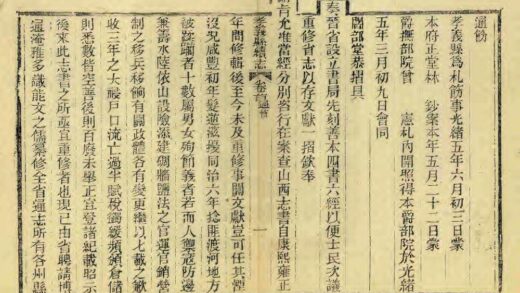 通飭
孝義縣爲札飭事光緒五年六月初三日蒙
本府正堂林 鈔蒙本年五月二十二日蒙
爵撫部院曾 憲札內開照得本爵部院於光緒
五年三月初九日會同
閻部堂恭摺具
奏晉省設立書局先刻善本四書六經以便士民次議
重修省志以存文獻一摺欽奉
旨允准當經分別咨行在案查山西志書自康熙雍正
孝義縣續志 卷首 通飭 一
年間修輯後至今未及重修事關文獻豈可任其煙
沒況咸豐初年髮逆滋擾同治六年捻匪渡河地方
被蹂躪者十數屬男女殉節義者若而人禦寇防邊
兼籌水陸依山設險濬建碉樓鹽法之官運官銷營
制之移兵移餉有關政體各有變更繼以七載之歉
收三年之大祲戶口流亡過半賦稅蠲緩頻頒倉儲
則悉數皆空善後則百廢未舉正宜登諸紀載昭示
後來此志書之所亟宜重修者也現已由省聘請博
通淹雅多識能文之儒纂修全省通志所有各州縣